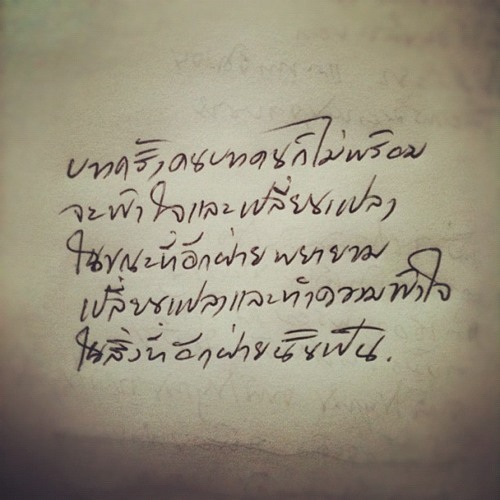 บางครั้งคนบางคนก็ไม่พร้อม
จะเข้าใจและเปลี่ยนแปลง
ในขณะที่อีกฝ่ายพยายาม
เปลี่ยนแปลงและทำความเข้าใจ
ในสิ่งที่อีกฝ่ายนั้นเป็น.